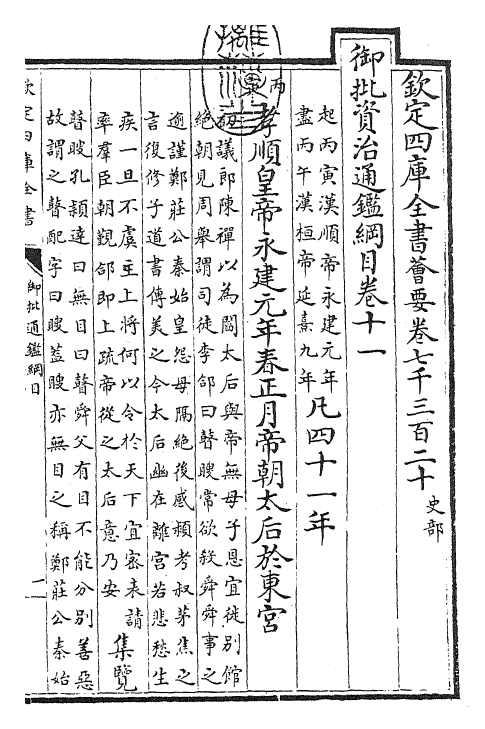 欽定四庫全書薈要卷七千三百二十 史部
御批資治通鑑綱目卷十一
起丙寅漢順帝永建元年
盡丙午漢桓帝延熹九年 凡四十一年
丙寅 孝順皇帝永建元年春正月帝朝太后於東宮
初議郎陳禪以為閻太后與帝無母子恩宜徙別館
絕朝見周舉謂司徒李郃曰瞽瞍常欲殺舜舜事之
逾謹鄭莊公秦始皇怨母隔絕後感潁考叔茅焦之
言復修子道書傳美之今太后幽在離宮若悲愁生
疾一旦不虞主上將何以令於天下宜密表請
率羣臣朝覲郃即上疏帝從之太后意乃安 集覽
瞽瞍孔穎達曰無目曰瞽舜父有目不能分別善惡
故謂之瞽配字曰瞍蓋瞍亦無目之稱鄭莊公秦始
欽定四庫全書
御批通鑑綱目